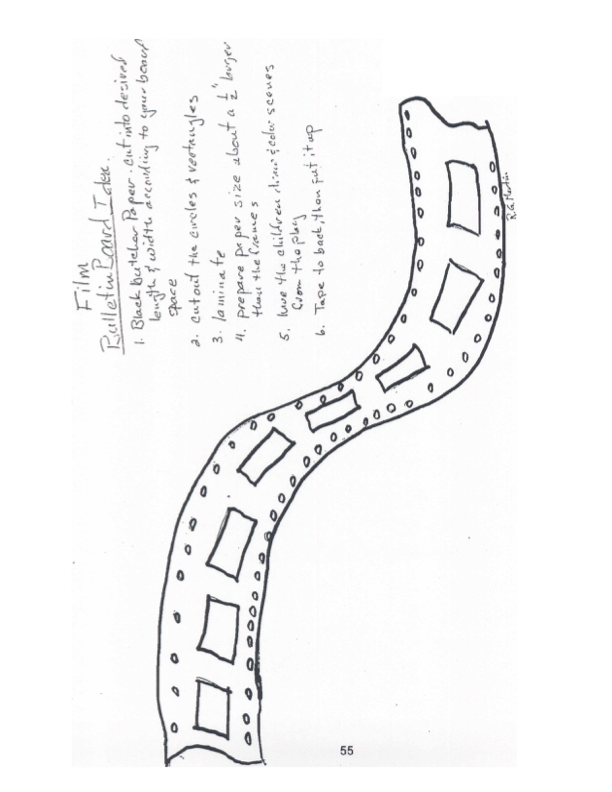 Film
Bulletin Board Idea.
1. Black butcher Paper - cut into desired
length & width according to your board
space
2. cut out the circles & rectangles
3. laminate
4. prepare paper size about a ½" larger
than the frames
5. have the children draw & color scenes
from the play
6. Tape to back, then put it up
R.G. Martin
55